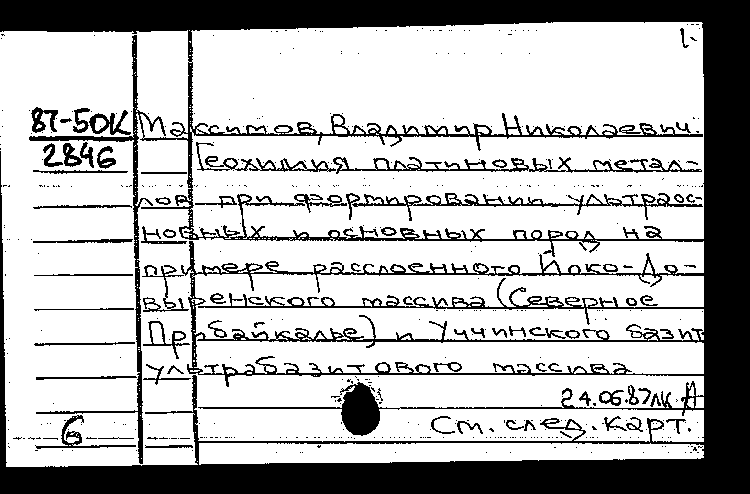 1.
87-50К Максимов, Владимир Николаевич.
2846 Геохимия платиновых метал-
лов при формировании ультраос-
новных и основных пород на
примере расслоенного Йоко-До-
выренского массива (Северное
Прибайкалье) и Уччинского базит
ультрабазитового массива
24.06.87лк
6 См. след. карт.